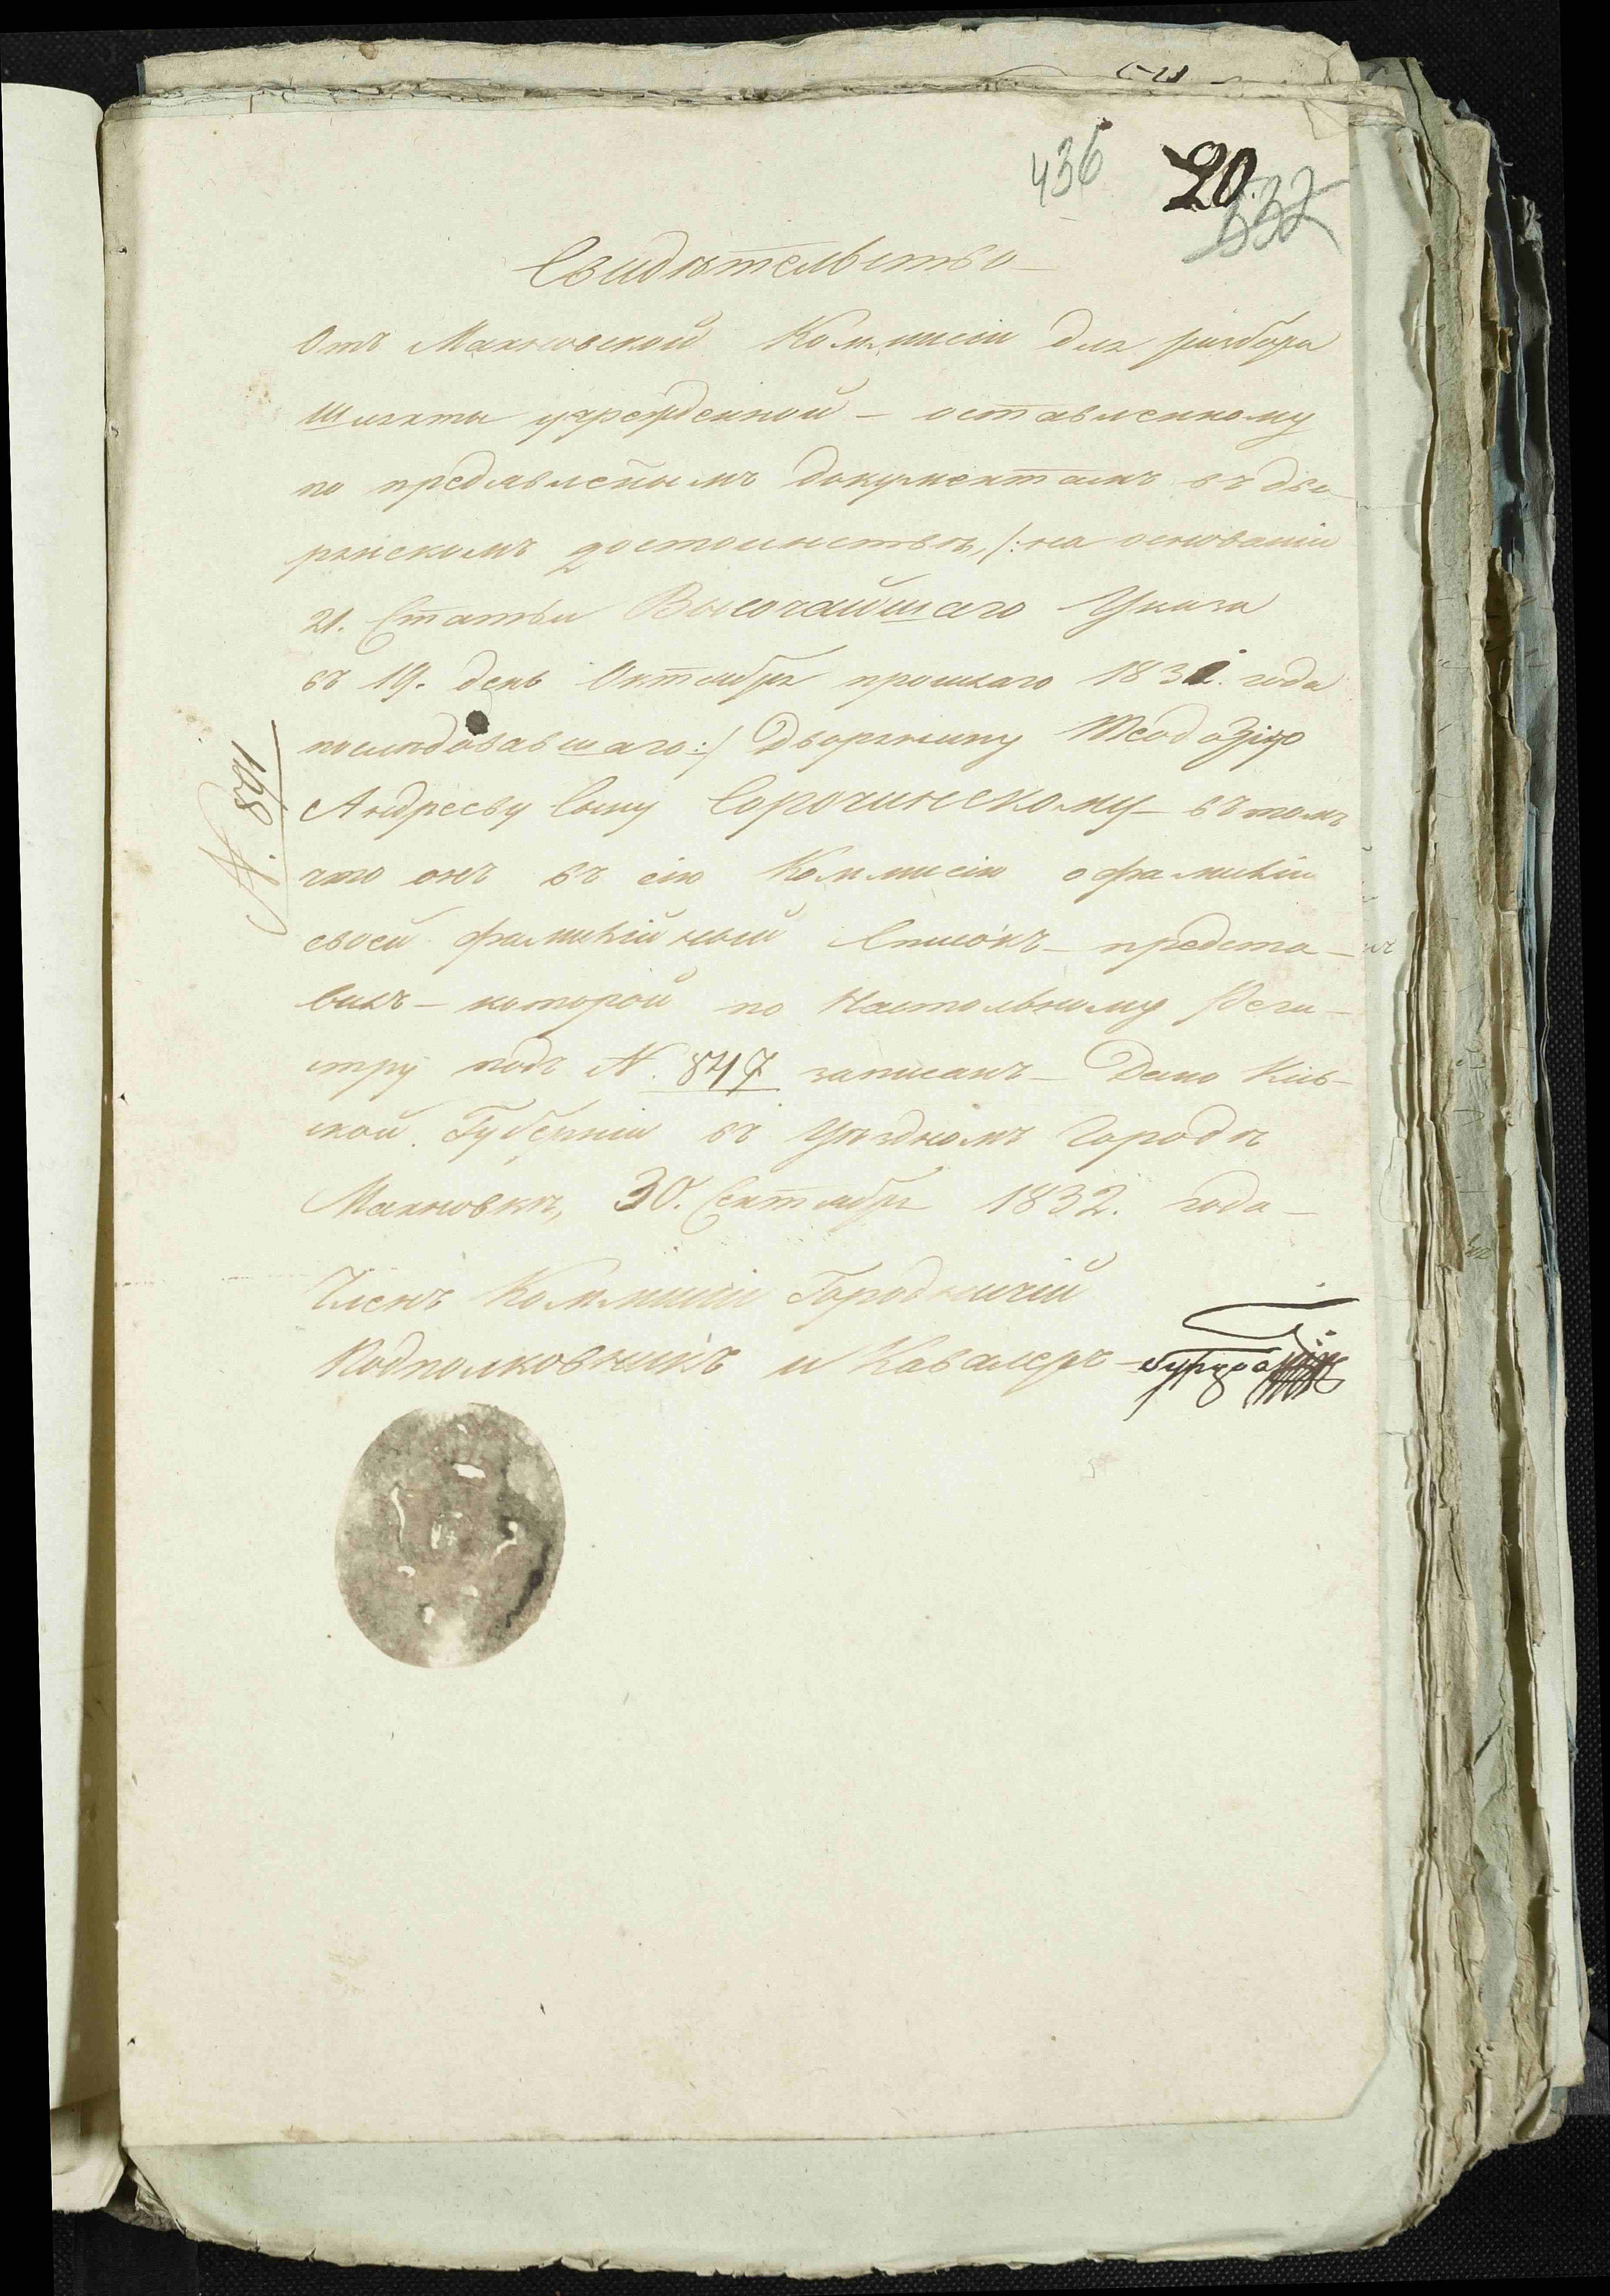 436 20. 332
Свидѣтельство
Отъ Махновской Коммисіи для разбора
Шляхты учрежденной – оставленному
по предявленымъ документамъ въ дво-
рянскомъ достоинствѣ, /: на основаніи
21. Статьи Высочайшаго Указа
въ 19. день Октября прошлаго 1831. года
послѣдовавшаго :/ Дворянину Теодозію
Андрееву Сыну Сорочинскому – въ томъ
что онъ въ сію Коммисію о фамиліи
своей фамилійный Списокъ – предста-
вилъ – которой по Настольному Реги-
стру подъ N. 847 записанъ – Дано Кіев-
ской Губерніи въ Уѣздномъ Городѣ
Махновкѣ, 30. Сентября 1832. года –
Членъ Коммисіи Городничій
Подполковникъ и Кавалеръ –
N. 891